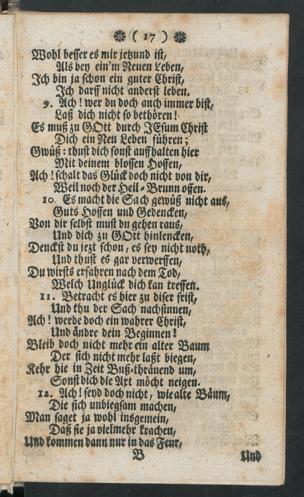 ( 17 )
Wohl besser es mir jetzund ist,
Als bey ein'm Neuen Leben,
Ich bin ja schon ein guter Christ,
Ich darf nicht anderst leben.
9. Ach! wer du doch auch immer bist,
Laß dich nicht so bethören!
Es muß zu GOtt durch JEsum Christ
Dich ein Neu Leben führen;
Gwüß: thust dich sonst auffhalten hier
Mit deinem blossen Hoffen,
Ach! schalt das Glück doch nicht von dir,
Weil noch der Heil-Brunn offen.
10. Es macht die Sach gewüß nicht aus,
Guts Hoffen und Gedencken,
Von dir selbst must du gehen raus,
Und dich zu GOtt hinlencken,
Denckst du jezt schon, es sey nicht noth,
Und thust es gar verwerffen,
Du wirsts erfahren nach dem Tod,
Welch Unglück dich kan treffen.
11. Betracht es hier zu diser frist,
Und thu der Sach nachsinnen,
Ach! werde doch ein wahrer Christ,
Und ändre dein Beginnen!
Bleib doch nicht mehr ein alter Baum
Der sich nicht mehr laßt biegen,
Kehr hie in Zeit Buß-thränend um,
Sonst dich die Axt möcht neigen.
12. Ach! seyd doch nicht, wie alte Bäum,
Die sich unbiegsam machen,
Man saget ja wohl insgemein,
Daß sie ja vielmehr krachen,
Und kommen dann nur in das Feur,
B Und